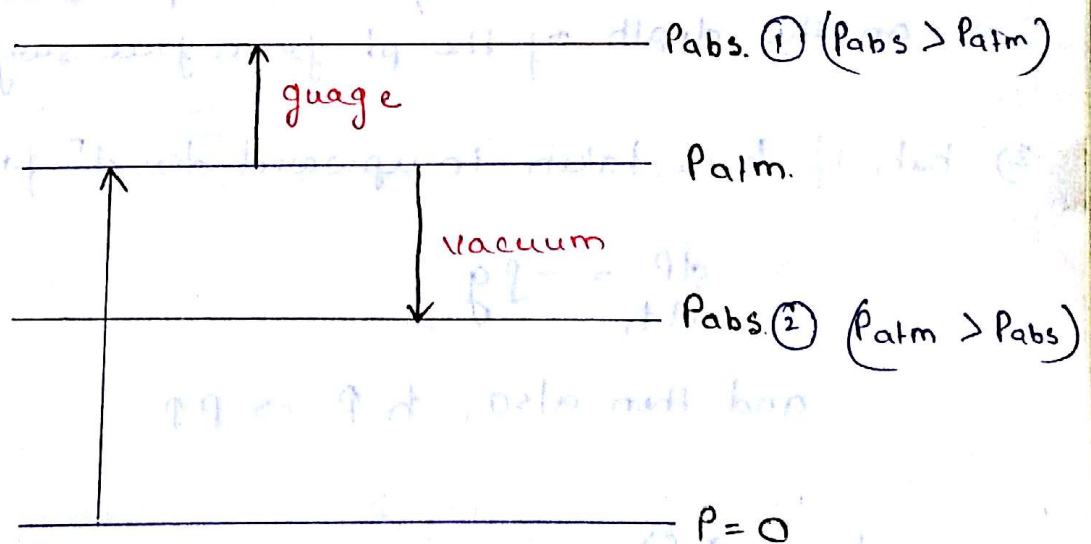 Pabs. ① (Pabs > Patm)
guage
Patm.
vacuum
Pabs. ② (Patm > Pabs)
P = 0